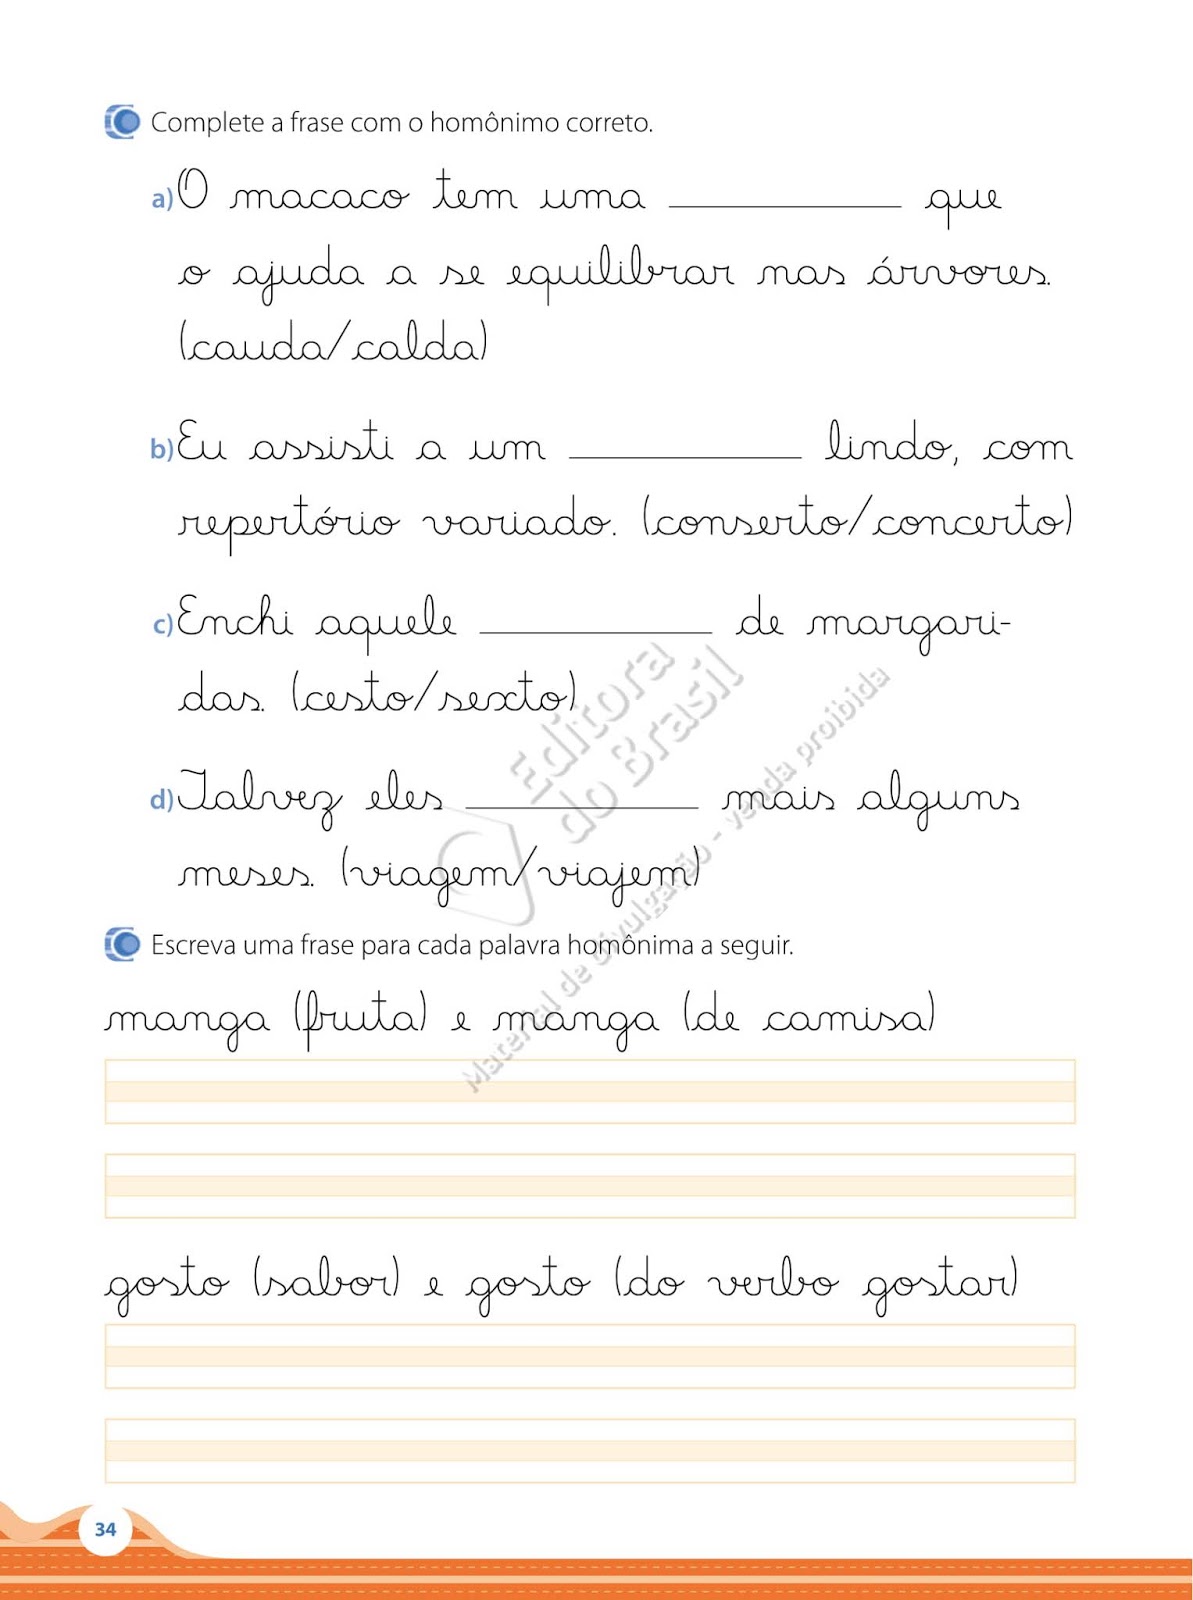 Complete a frase com o homônimo correto.
a) O macaco tem uma ____________ que
o ajuda a se equilibrar nas árvores.
(cauda/calda)
b) Eu assisti a um ____________ lindo, com
repertório variado. (conserto/concerto)
c) Enchi aquele ____________ de margari-
das. (cesto/sexto)
d) Talvez eles ____________ mais alguns
meses. (viagem/viajem)
Editora
do Brasil
Material de divulgação - venda proibida
Escreva uma frase para cada palavra homônima a seguir.
manga (fruta) e manga (de camisa)
gosto (sabor) e gosto (do verbo gostar)
34